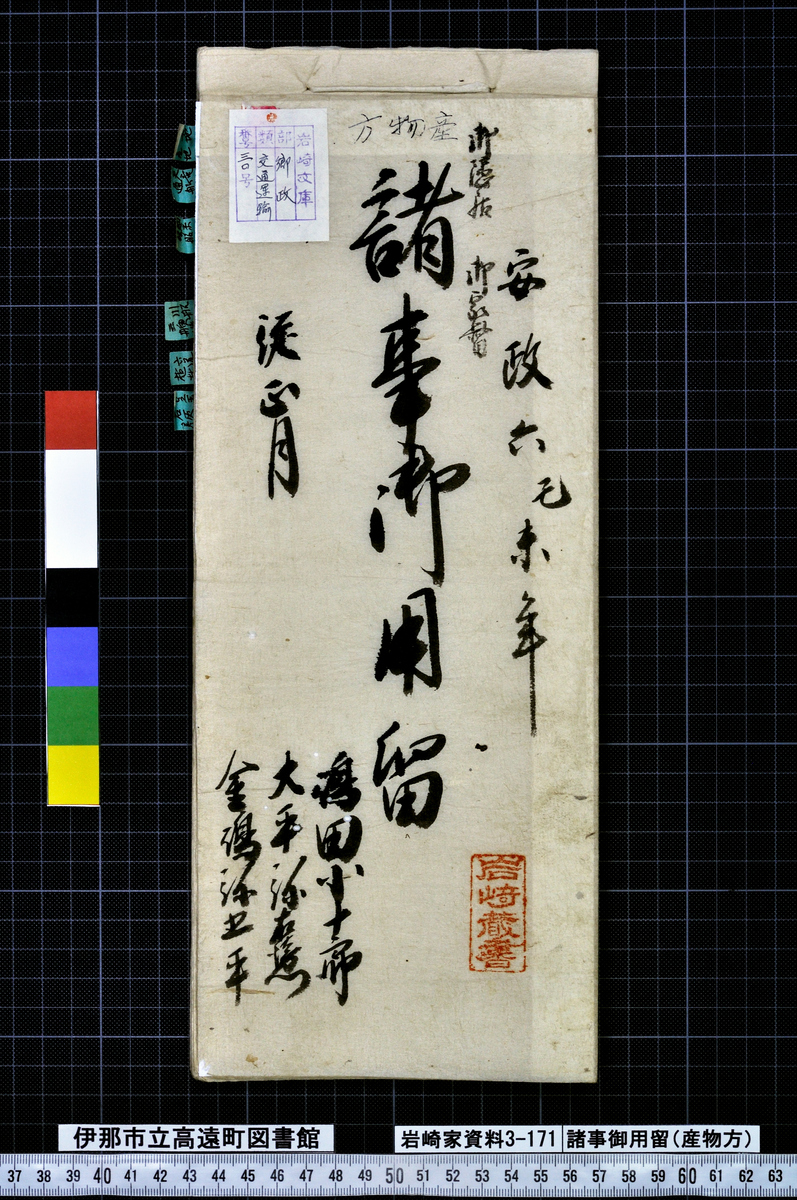 産物方
御隠居 御家督
安政六己未年
諸事御用留
従正月
嶋田小十郎
大平弥右衛門
金鴻弥五平
岩崎文庫
部 郷政
類 交通運輸
号 三〇号
岩崎蔵書
伊那市立高遠町図書館
岩崎家資料3-171
諸事御用留(産物方)
37 38 39 40 41 42 43 44 45 46 47 48 49 50 51 52 53 54 55 56 57 58 59 60 61 62 63